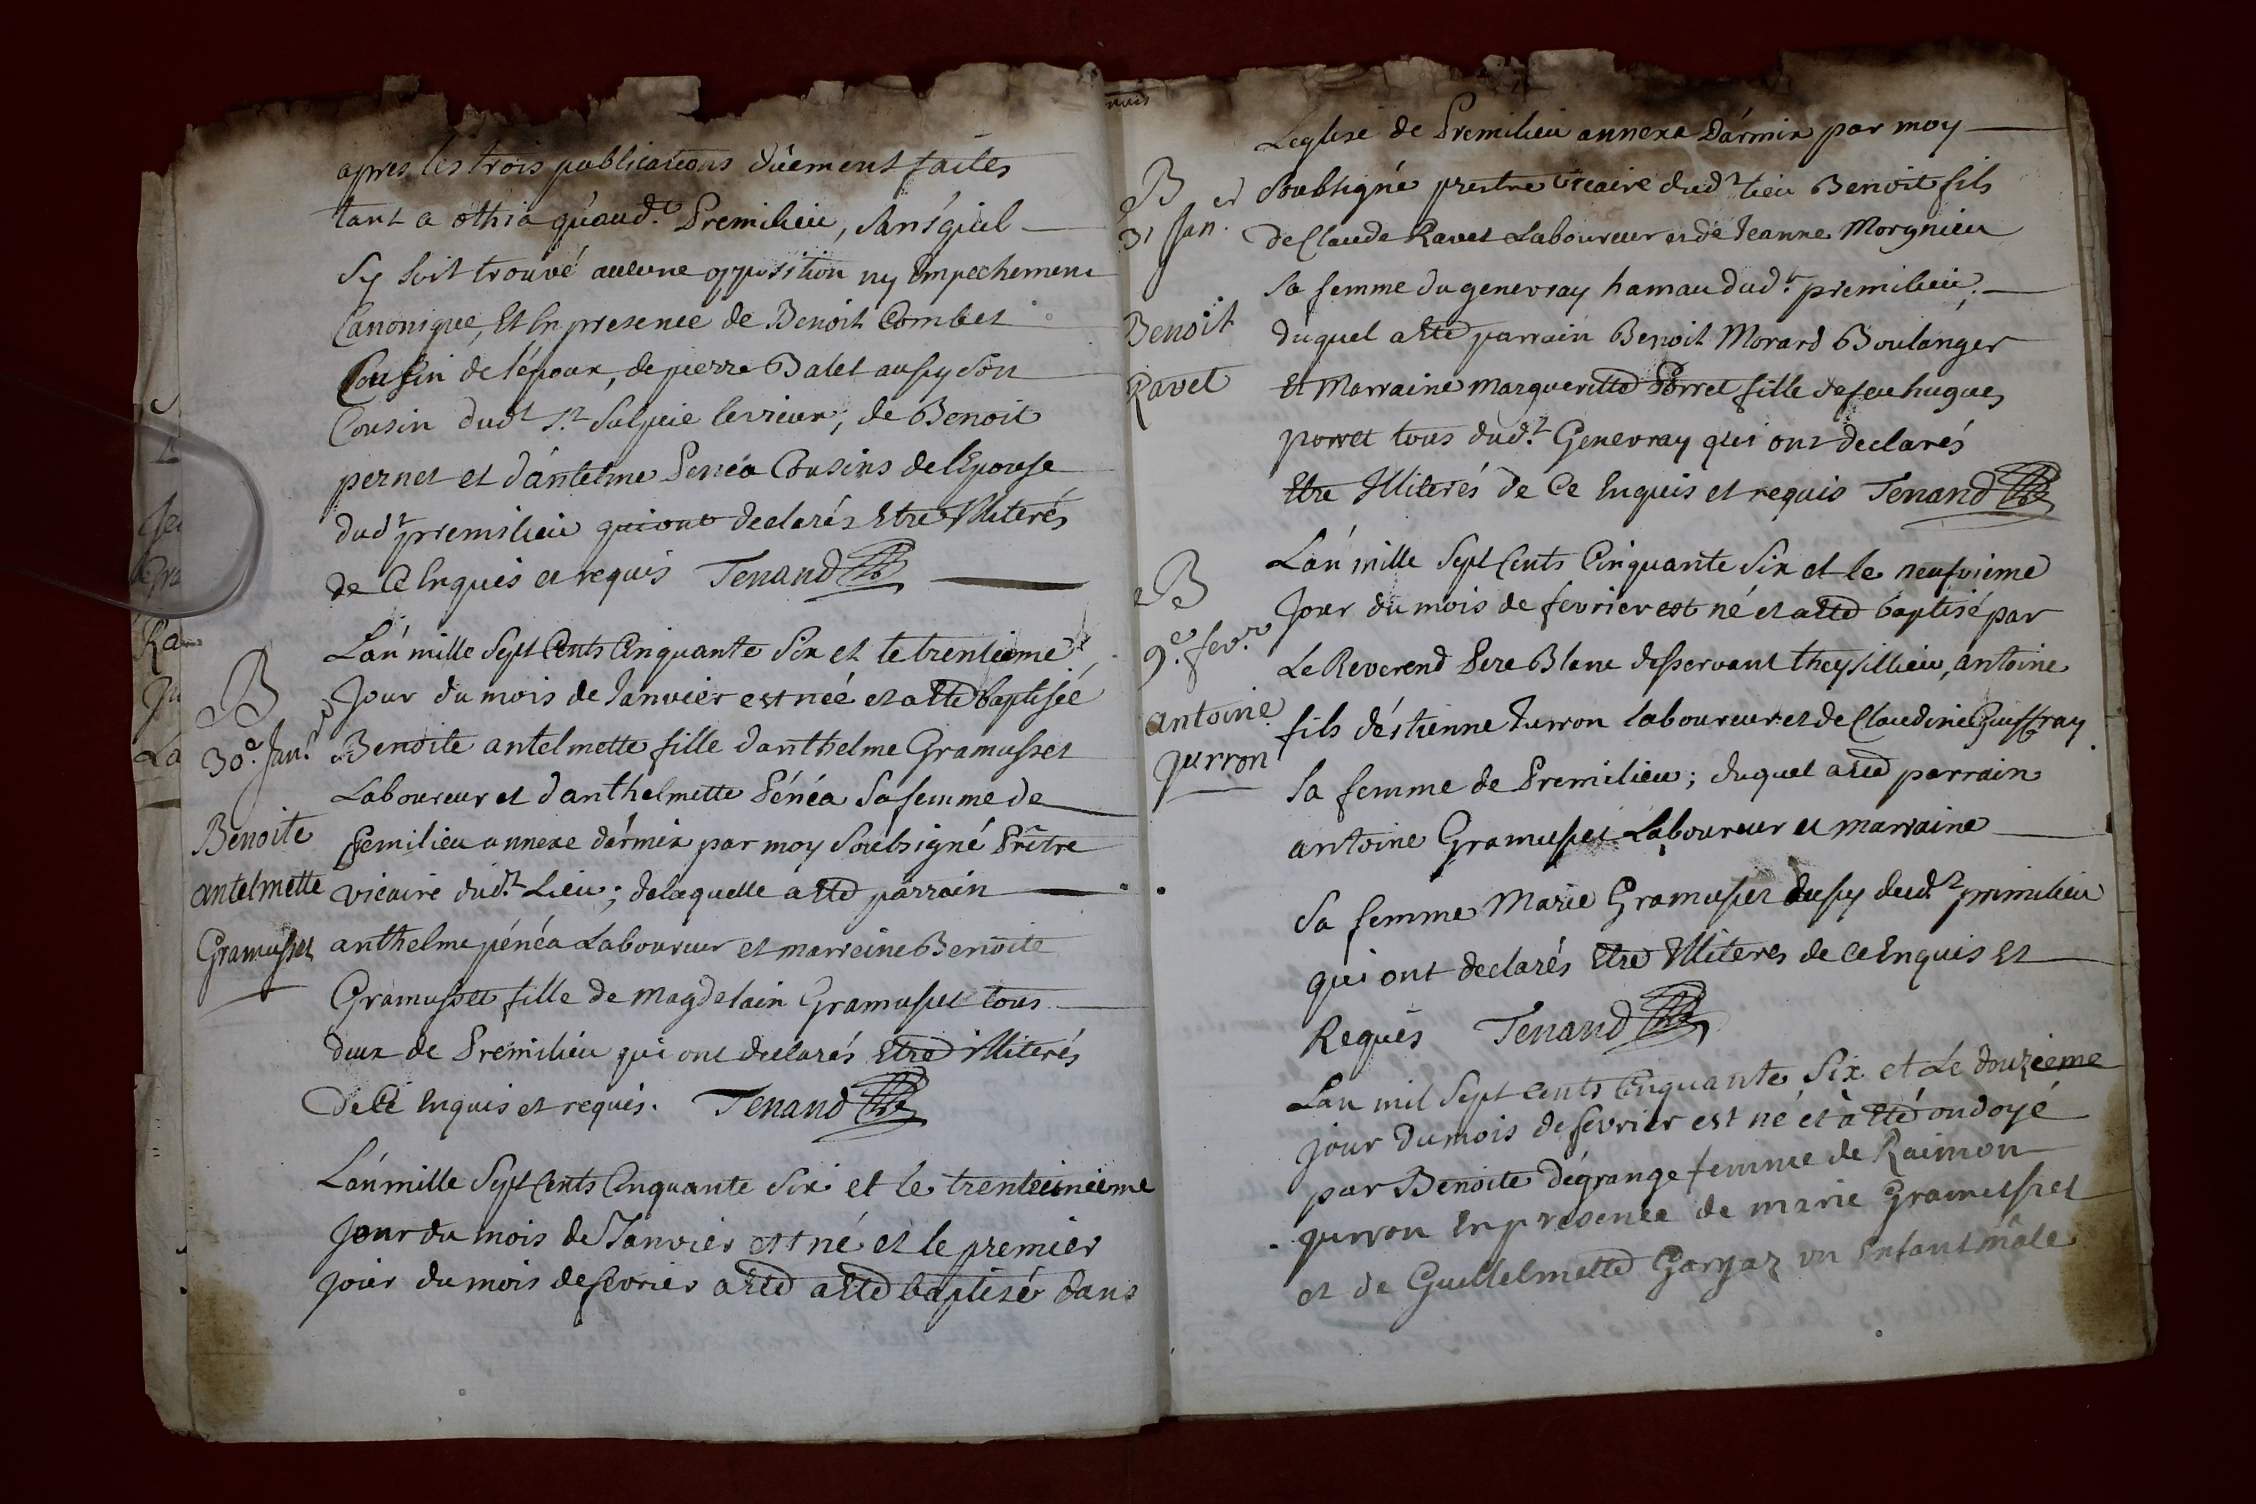 apres les trois publications düement faites
tant a othia qu'aud.t Premilieu, sans qu'il
Sy soit trouvé aucune opposition ny Empechement
Canonique, Et En presence de Benoit Combet
Cousin de l'époux, de pierre Balet aussy Son
Cousin dud.t Sr. Sulpice le vieux, de Benoit
pernet et d'antelme Penéa Cousins de l'Epouse
dud.t premilieu qui ont declarés Etre Illiterés
de Ce Enquis et requis Tenand
B
30.e Janr.
Benoite
antelmette
Gramusset
L'an mille Sept Cents Cinquante Six et le trentieme
Jour du mois de Janvier est née et a Eté baptisée
Benoite antelmette fille d'anthelme Gramusset
Laboureur et d'anthelmette Pénéa Sa femme de
Premilieu annexe d'armix par moy Soubsigné Prêtre
vicaire dud.t Lieu; de laquelle a Eté parrain
anthelme pénéa Laboureur et marreine Benoite
Gramusset fille de Magdelain Gramusset tous
deux de Premilieu qui ont declarés Etre illiterés
de Ce Enquis et requis. Tenand
L'an mille Sept Cents Cinquante Six et le trenteunieme
Jour du mois de Janvier est né et le premier
jour du mois de fevrier a Eté a Eté baptisé dans
B
31 Jan.
Benoit
Ravet
L'eglise de Premilieu annexe D'armix par moy
Soubsigné prestre vicaire dud.t lieu Benoit fils
de Claude Ravet Laboureur et de Jeanne Morgnieu
Sa femme du genevray hamau dud.t premilieu;
duquel a Eté parrain Benoit Morard Boulanger
Et Marraine Margueritte Porret fille de feu hugues
porret tous dud.t Genevray qui ont declarés
Etre Illiterés de Ce Enquis et requis Tenand
B
9.e fevr.
antoine
jurron
L'an mille Sept Cents Cinquante Six et le neufvieme
Jour du mois de fevrier est né et a Eté baptisé par
Le Reverend Pere Blanc desservant theysillieu, antoine
fils d'éstienne Jurron Laboureur et de Claudine Guiffray
Sa femme de Premilieu; duquel a Eté parrain
antoine Gramusset Laboureur et marraine
Sa femme Marie Gramusset aussy dud.t primilieu
qui ont declarés Etre Illiteres de Ce Enquis Et
Requis Tenand
L'an mil Sept cents Cinquante Six et Le douzieme
jour du mois de fevrier est né et à Eté ondoyé
par Benoite dégrange femme de Raimon
jurron En presence de marie Gramusset
et de Guillelmette Gargaz un Enfant mâle